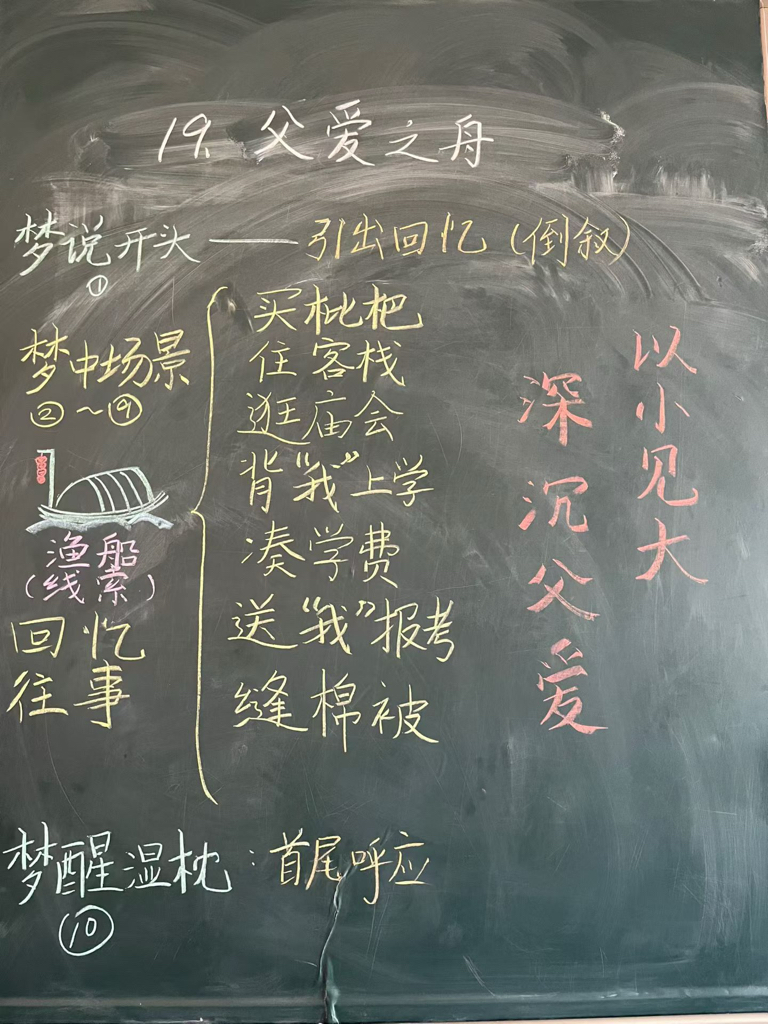 19.父爱之舟
梦说开头——引出回忆(倒叙)
①
梦中场景
②~⑨
渔船
(线索)
回忆
往事
买枇杷
住客栈
逛庙会
背“我”上学
凑学费
送“我”报考
缝棉被
深沉父爱
以小见大
梦醒湿枕:首尾呼应
⑩